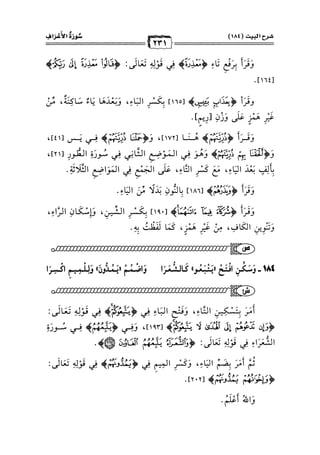 شرح البيت (١٨٤)
٢٣١
سُورَةُ الأَعْرَافِ
وَقَرَأَ بِرَفْعِ تَاءِ ﴿مَعْذِرَةً﴾ فِي قَوْلِهِ تَعَالَى: ﴿قَالُوا۟ مَعْذِرَةً إِلَىٰ رَبِّكُمْ﴾
[١٦٤].
وقَرَأَ ﴿بِعَذَابِۭ بَـِٔيسِۭ﴾ [١٦٥] بِكَسْرِ البَاءِ، وَبَعْدَهَا يَاءٌ سَاكِنَةٌ، مِنْ
غَيْرِ هَمْزٍ عَلَى وَزْنِ [رِيمٍ].
وَقَــرَأَ ﴿ذُرِّيَّتَهُمْ﴾ هُـنَـا [١٧٢]، وَ﴿حَمَلْنَا ذُرِّيَّتَهُمْ﴾ فِـي يَـس [٤١]،
وَ﴿أَلْحَقْنَا بِهِمْ ذُرِّيَّتَهُمْ﴾ وَهُـوَ فِي الـمَـوْضِـعِ الـثَّـانِـي فِي سُورَةِ الطُّورِ [٢١]،
بِأَلِفٍ بَعْدَ اليَاءِ، مَعَ كَسْرِ التَّاءِ، عَلَى الجَمْعِ فِي المَوَاضِعِ الثَّلَاثَةِ.
وَقَرَأَ ﴿وَيَذَرُهُمْ﴾ [١٨٦] بِالنُّونِ بَدَلًا مِنْ اليَاءِ.
وَقَرَأَ ﴿شُرَكَآءَ فِيمَآ ءَاتَىٰهُمَا﴾ [١٩٠] بِكَسْرِ الشِّينِ، وَإِسْكَانِ الرَّاءِ،
وَتَنْوِينِ الكَافِ، مِنْ غَيْرِ هَمْزٍ، كَمَا لَفَظْتُ بِهِ.
١٨٤ ـ وَسَكِّنِ افْتَحْ ﴿يَتْبَعُوا﴾ كَـالـشُّـعَرَا وَاضْـمُـمْ ﴿يَـمُـدُّونَ﴾ وَلِـلْـمِـيـمِ اكْـسِـرَا
أَمَرَ بِتَسْكِينِ التَّاءِ، وَفَتْحِ البَاءِ فِي ﴿يَتَّبِعُوكُمْ﴾ فِي قَوْلِهِ تَعَـالَى:
﴿وَإِن تَدْعُوهُمْ إِلَى ٱلْهُدَىٰ لَا يَتَّبِعُوكُمْ﴾ [١٩٣]، وَفِـي ﴿يَتَّبِعُهُمُ﴾ فِـي سُـورَةِ
الشُّعَرَاءِ فِي قَوْلِهِ تَعَالَى: ﴿وَٱلشُّعَرَآءُ يَتَّبِعُهُمُ ٱلْغَاوُۥنَ﴾.
ثُمَّ أَمَرَ بِضَمِّ اليَاءِ، وَكَسْرِ المِيمِ فِي ﴿يَمُدُّونَهُمْ﴾ فِي قَوْلِهِ تَعَالَى:
﴿وَإِخْوَٰنُهُمْ يَمُدُّونَهُمْ﴾ [٢٠٢].
وَاللهُ أَعْلَمُ.